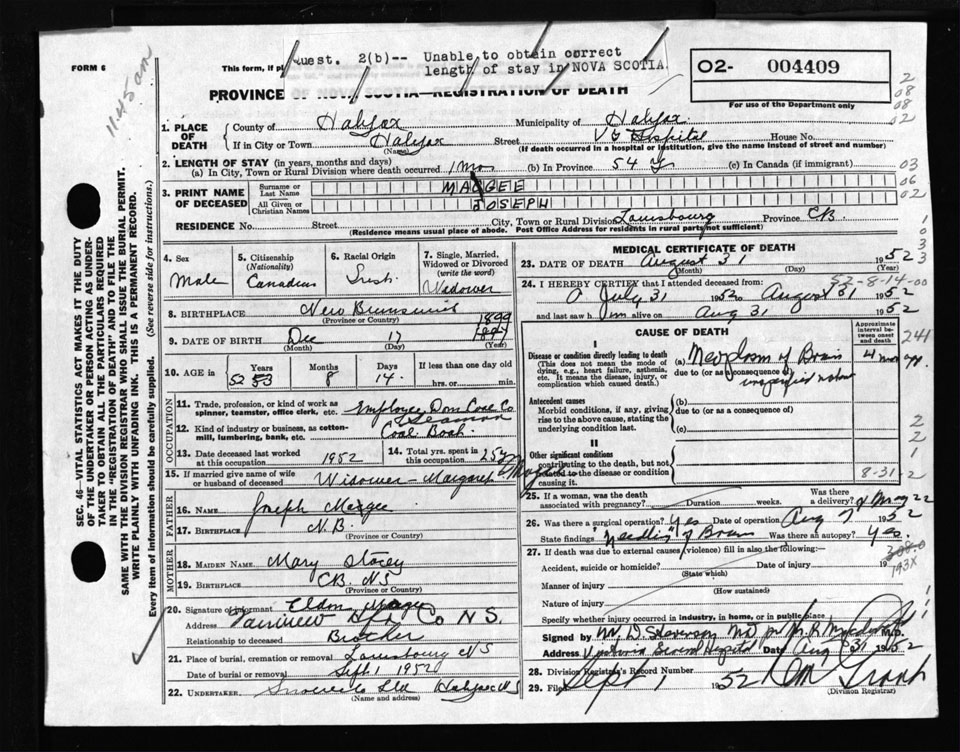 FORM 6
11.45 am
This form, if pl
Quest. 2(b)-- Unable to obtain correct
length of stay in NOVA SCOTIA.
02- 004409
For use of the Department only
PROVINCE OF NOVA SCOTIA—REGISTRATION OF DEATH
1. PLACE OF DEATH
County of Halifax Municipality of Halifax
If in City or Town Halifax Street V G Hospital House No.
(Name) (If death occurred in a hospital or institution, give the name instead of street and number)
2. LENGTH OF STAY (in years, months and days)
(a) In City, Town or Rural Division where death occurred 1 mo (b) In Province 54 y (c) In Canada (if immigrant)
3. PRINT NAME OF DECEASED
Surname or Last Name MAGEE
All Given or Christian Names JOSEPH
RESIDENCE No. Street City, Town or Rural Division Louisbourg Province CB.
(Residence means usual place of abode. Post Office Address for residents in rural parts not sufficient)
4. Sex Male
5. Citizenship (Nationality) Canadian
6. Racial Origin Irish
7. Single, Married, Widowed or Divorced (write the word) Widower
8. BIRTHPLACE New Brunswick
(Province or Country)
9. DATE OF BIRTH Dec 17 1899 1897
(Month) (Day) (Year)
10. AGE in Years 52 53 Months 8 Days 14 If less than one day old
hrs. or min.
OCCUPATION
11. Trade, profession, or kind of work as spinner, teamster, office clerk, etc. Employee Dom Coal Co
Seaman
12. Kind of industry or business, as cotton-mill, lumbering, bank, etc. Coal Boat
13. Date deceased last worked at this occupation 1952
14. Total yrs. spent in this occupation 25 yrs
15. If married give name of wife or husband of deceased Widower - Margaret
FATHER
16. NAME Joseph Magee
17. BIRTHPLACE N.B.
(Province or Country)
MOTHER
18. MAIDEN NAME Mary Stacey
19. BIRTHPLACE CB. NS
(Province or Country)
20. Signature of informant Eldon Magee
Address Co N S.
Relationship to deceased Brother
21. Place of burial, cremation or removal Louisbourg NS
Date of burial or removal Sept 1 1952
22. UNDERTAKER Ltd Halifax NS
(Name and address)
MEDICAL CERTIFICATE OF DEATH
23. DATE OF DEATH August 31 1952
(Month) (Day) (Year)
52-8-14-00
24. I HEREBY CERTIFY that I attended deceased from:
July 31 1952 to August 31 1952
and last saw him alive on Aug 31 1952
CAUSE OF DEATH
Approximate interval between onset and death
I
Disease or condition directly leading to death
(This does not mean the mode of dying, e.g., heart failure, asthenia, etc. It means the disease, injury, or complication which caused death.)
(a) Neoplasm of Brain 4 mos
due to (or as a consequence of)
unspecified nature
Antecedent causes
Morbid conditions, if any, giving rise to the above cause, stating the underlying condition last.
(b)
due to (or as a consequence of)
(c)
II
Other significant conditions
contributing to the death, but not related to the disease or condition causing it.
8-31-2
25. If a woman, was the death associated with pregnancy? Duration weeks. Was there a delivery?
26. Was there a surgical operation? Yes Date of operation Aug 7 1952
State findings Needling of Brain Was there an autopsy? Yes.
27. If death was due to external causes (violence) fill in also the following:—
Accident, suicide or homicide? Date of injury 19
(State which)
193X
Manner of injury
(How sustained)
Nature of injury
Specify whether injury occurred in industry, in home, or in public place
Signed by W. D. Stevenson MD M.D.
Address Victoria General Hospital Date Aug 31 1952
28. Division Registrar's Record Number
29. Filed Sept 1 1952
(Division Registrar)
SEC. 46—VITAL STATISTICS ACT MAKES IT THE DUTY
OF THE UNDERTAKER OR PERSON ACTING AS UNDER-
TAKER TO OBTAIN ALL THE PARTICULARS REQUIRED
IN THE "REGISTRATION OF DEATH" AND TO FILE THE
SAME WITH THE DIVISION REGISTRAR WHO SHALL ISSUE THE BURIAL PERMIT.
WRITE PLAINLY WITH UNFADING INK. THIS IS A PERMANENT RECORD.
Every item of information should be carefully supplied. (See reverse side for instructions.)
2
08
08
02
03
06
02
1
0
3
3
241
2
2
1
2
22